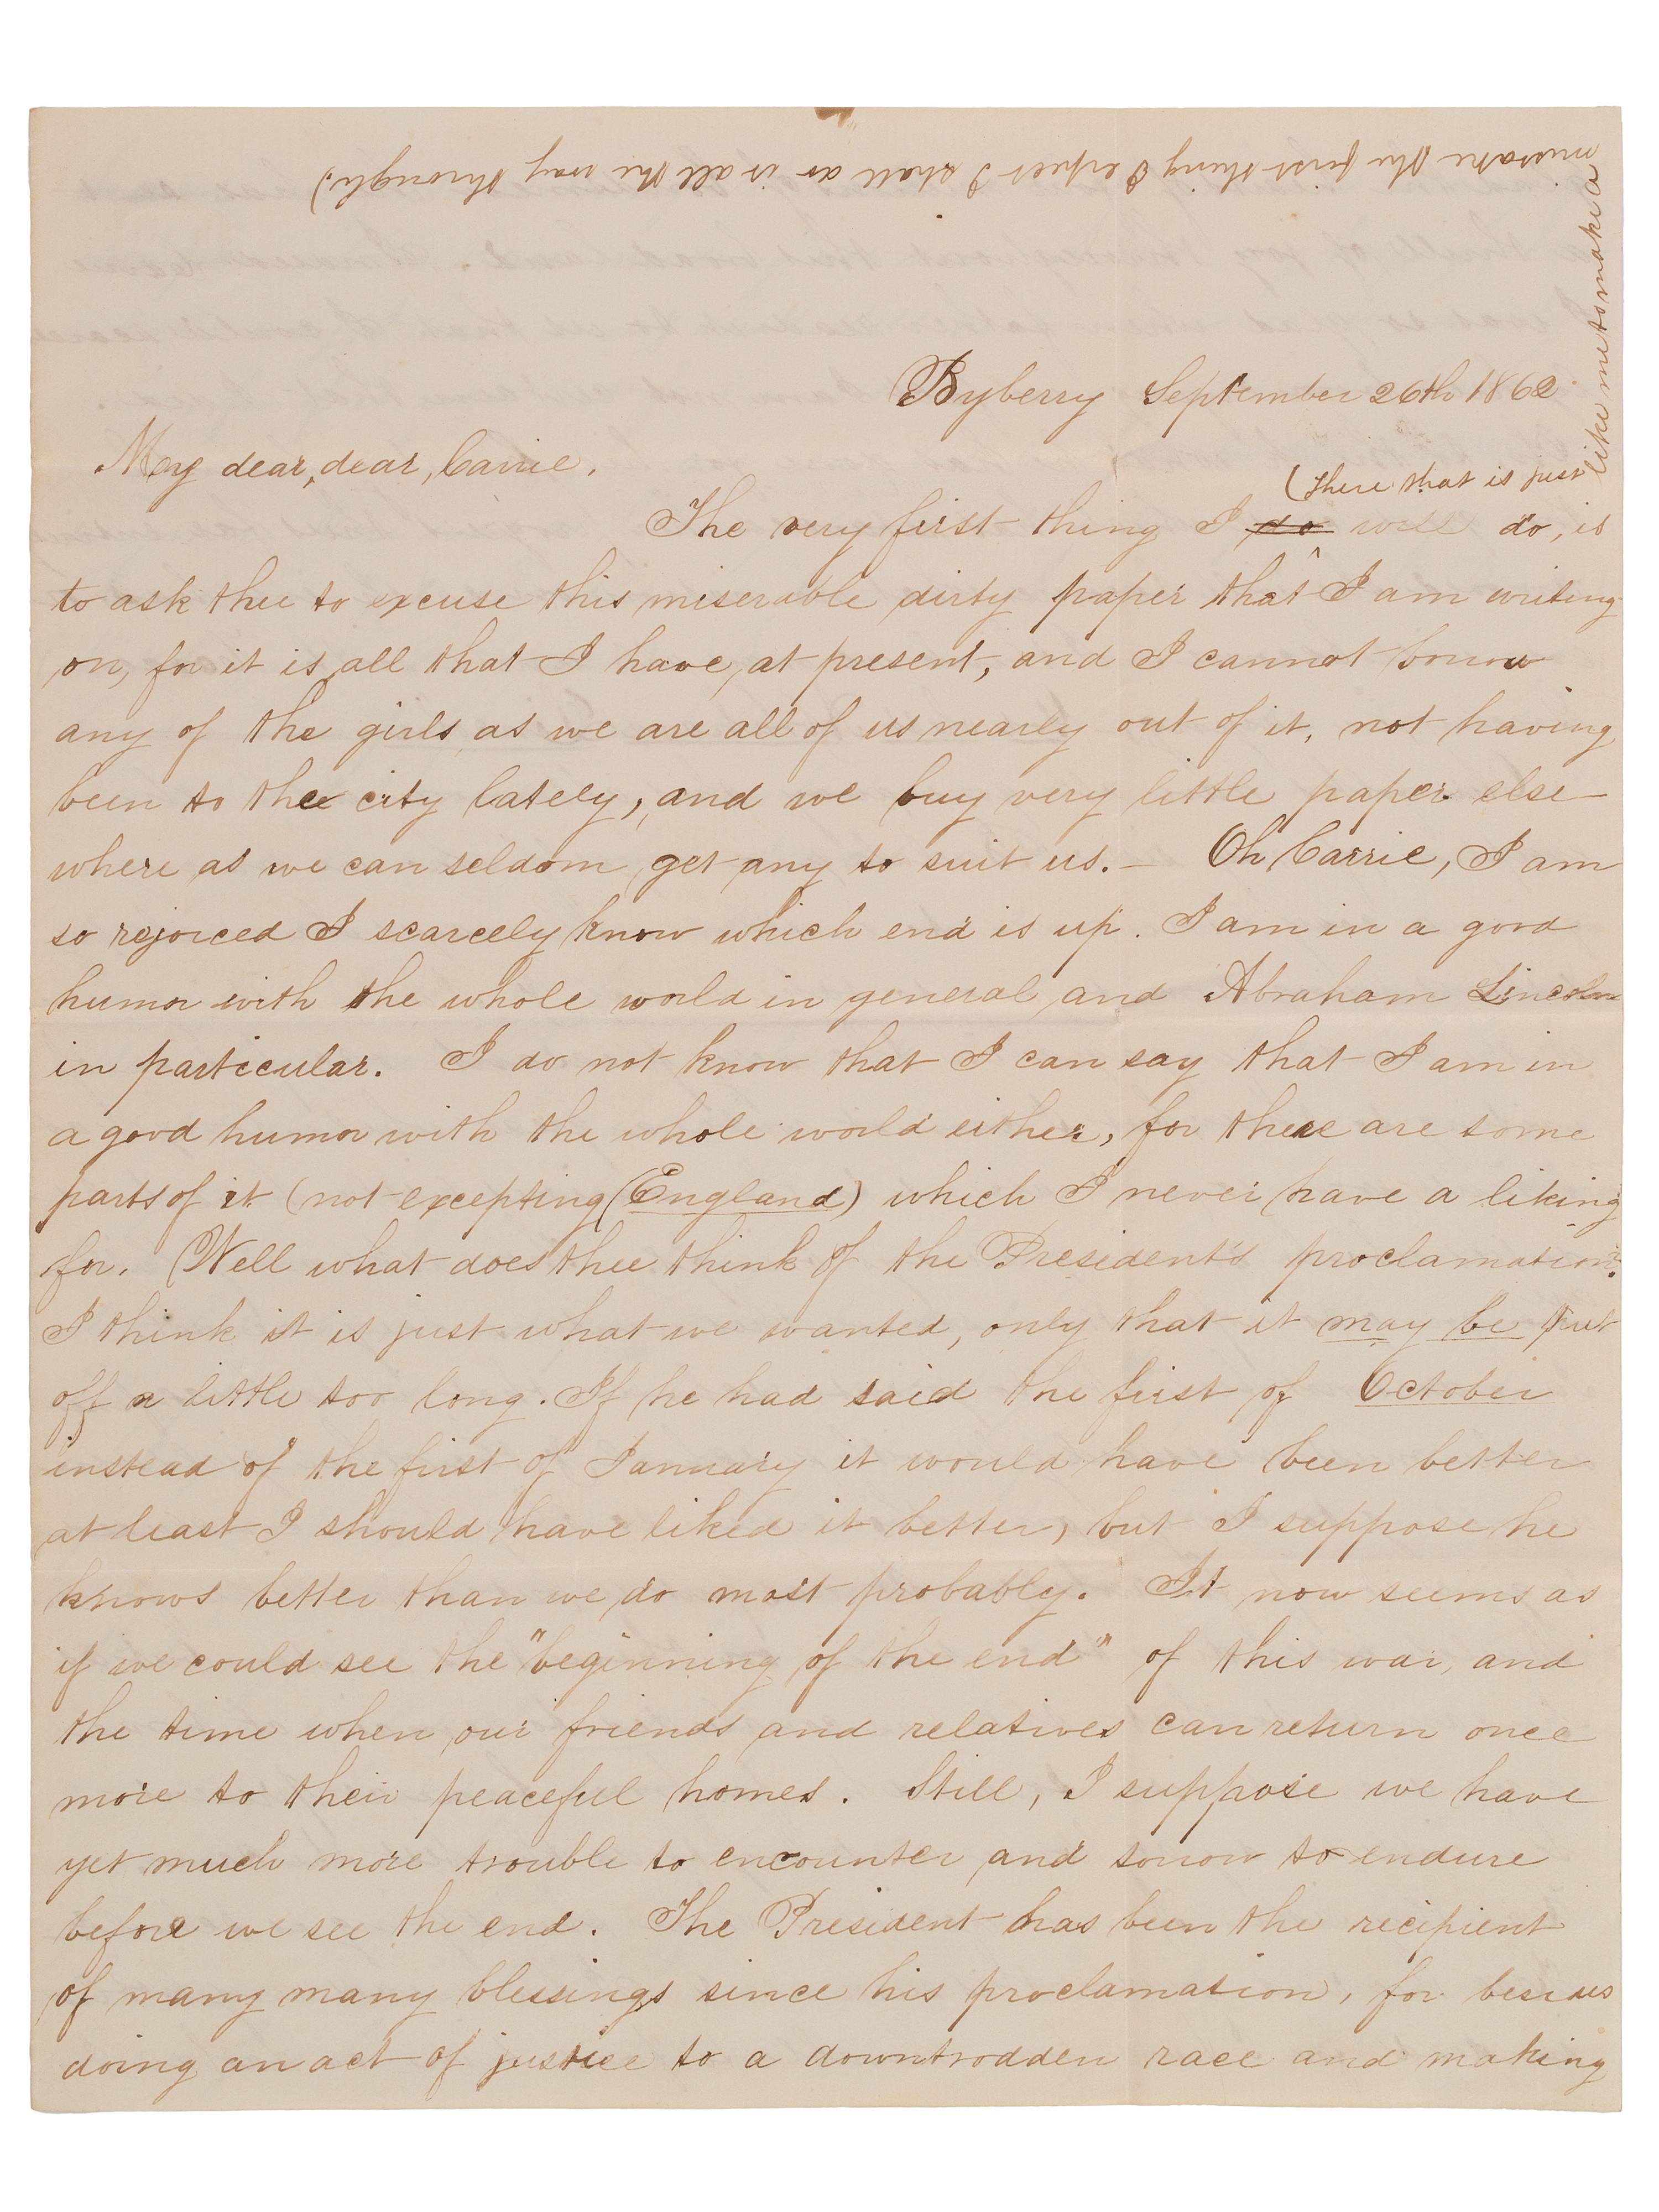 Byberry September 26th 1862.
My dear, dear, Carrie.
(there that is just
like me to make a
mistake the first thing I expect I shall as is all the way through.)
The very first thing I do will do, is
to ask thee to excuse this miserable dirty paper that I am writing
on, for it is all that I have, at present, and I cannot borrow
any of the girls, as we are all of us nearly out of it, not having
been to the city lately, and we buy very little paper else
where as we can seldom get any to suit us. — Oh Carrie, I am
so rejoiced I scarcely know which end is up. I am in a good
humor with the whole world in general and Abraham Lincoln
in particular. I do not know that I can say that I am in
a good humor with the whole world either, for there are some
parts of it (not excepting (England) which I never have a liking
for. Well what does thee think of the President's proclamation?
I think it is just what we wanted, only that it may be put
off a little too long. If he had said the first of October
instead of the first of January it would have been better
at least I should have liked it better, but I suppose he
knows better than we do most probably. It now seems as
if we could see the "beginning of the end" of this war, and
the time when our friends and relatives can return once
more to their peaceful homes. Still, I suppose we have
yet much more trouble to encounter and sorrow to endure
before we see the end. The President has been the recipient
of many many blessings since his proclamation, for besides
doing an act of justice to a downtrodden race and making